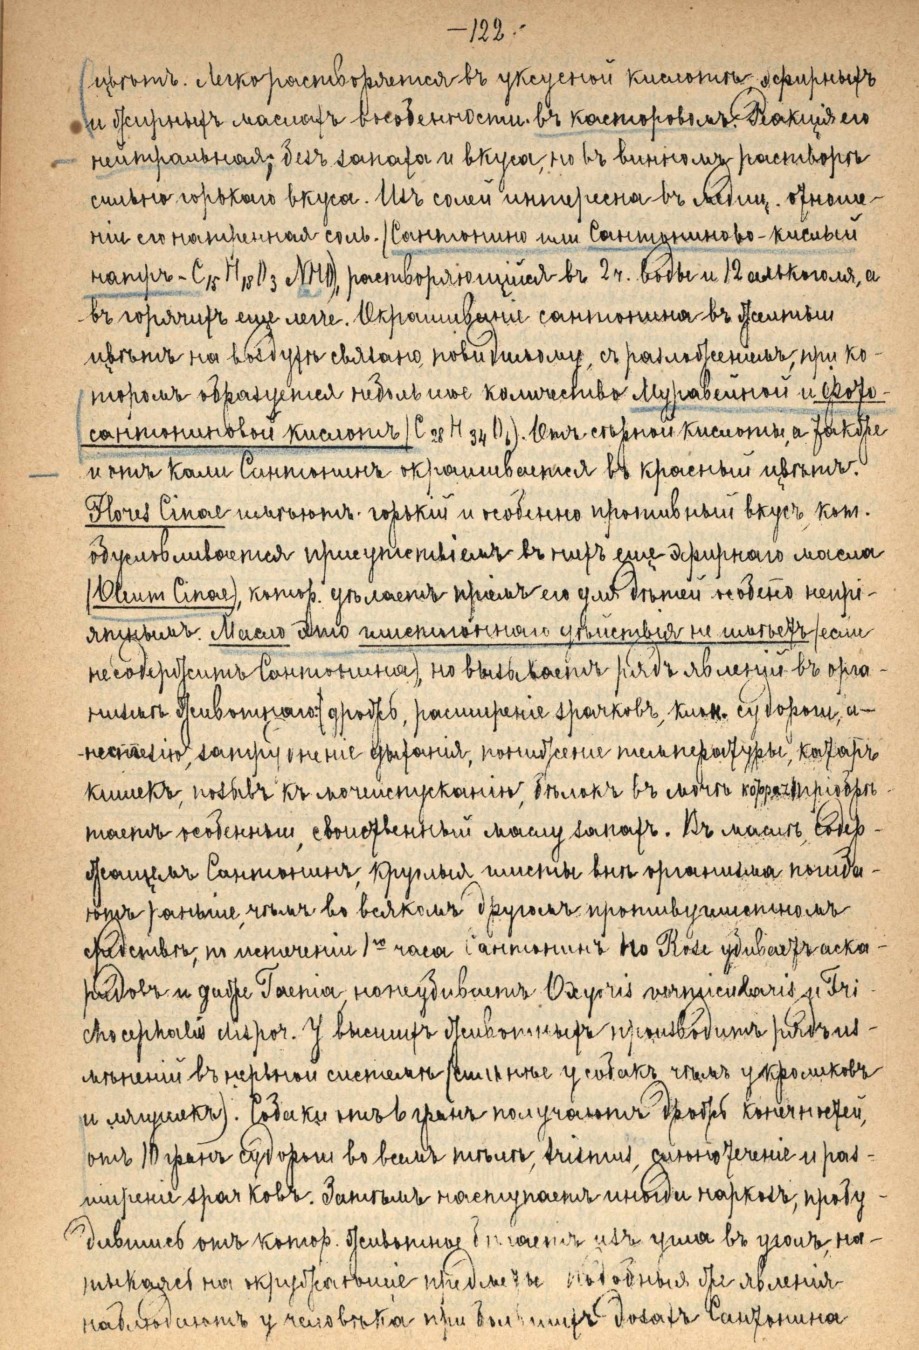 —122.
цвѣтъ. Легко растворяется въ уксусной кислотѣ, эфирныхъ
и жирныхъ маслахъ въ особенности въ касторовомъ. Реакція его
нейтральная; безъ запаха и вкуса, но въ винномъ растворѣ
сильно горькаго вкуса. Изъ солей интересна въ медиц. отноше-
ніи его натренная соль. (Сантонино или Сантониново-кислый
натръ - C15 H18 O3 NHO), растворяющійся въ 2 ч. воды и 12 алькоголя, а
въ горячихъ еще легче. Окрашиваніе сантонина въ желтый
цвѣтъ на воздухѣ связано, повидимому, съ разложеніемъ, при ко-
торомъ образуется небольшое количество Муравейной и Фото-
сантониновой кислотъ (C28 H34 O6). Отъ сѣрной кислоты, а также
и отъ кали Сантонинъ окрашивается въ красный цвѣтъ.
Flores Cinae имѣютъ горькій и особенно противный вкусъ, кот.
обусловливается присутствіемъ въ нихъ еще эфирнаго масла
(Oleum Cinae), котор. дѣлаетъ пріемъ его для дѣтей особено непрі-
ятнымъ. Масло это глистогоннаго дѣйствія не имѣетъ (если
не содержитъ Сантонина), но вызываетъ рядъ явленій въ орга-
низмѣ животнаго: (дрожь, расширеніе зрачковъ, клон. судороги, а-
нестезію, затрудненіе дыханія, пониженіе температуры, катаръ
кишекъ, позывъ къ мочеиспусканію, бѣлокъ въ мочѣ пріобрѣ-
таетъ особенный, свойственный маслу запахъ. Въ маслѣ, содер-
жащемъ Сантонинъ, круглыя глисты внѣ организма погиба-
ютъ раньше, чѣмъ во всякомъ другомъ противуглистномъ
средствѣ, по истеченіи 1го часа Сантонинъ по Rose убиваетъ аска-
ридовъ и даже Taenia, но не убиваетъ Oxyuris vermicularis и Tri-
chocephalis dispor. У высшихъ животныхъ производитъ рядъ из-
мѣненій въ нервной системѣ (сильнѣе у собакъ чѣмъ у кроликовъ
и лягушекъ). Собаки отъ 6 гранъ получаютъ дрожь конечностей,
отъ 10 гранъ судороги во всемъ тѣлѣ, trismus, слюнотеченіе и рас-
ширеніе зрачковъ. Затѣмъ наступаетъ иногда наркозъ, пробу-
дившись отъ котор. животное бѣгаетъ изъ угла въ уголъ, на-
тыкаясь на окружающіе предметы. Подобныя же явленія
наблюдаютъ у человѣка при большихъ дозахъ Сантонина